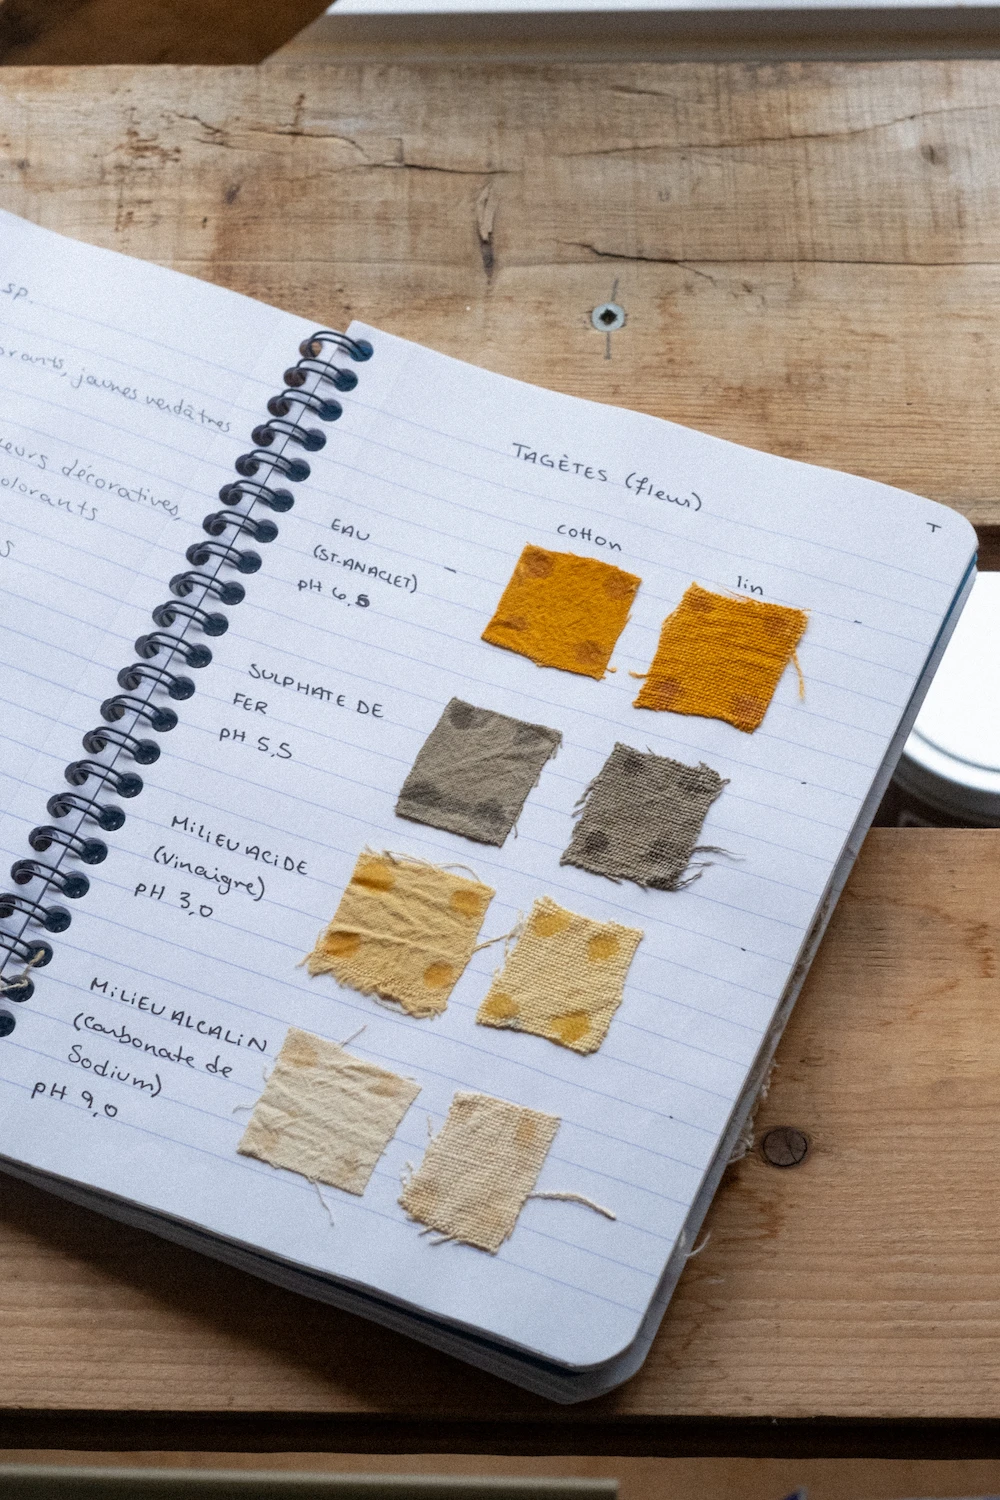 sp.
jaunes verdâtres
décoratives,
TAGÈTES (fleur)
T
cotton
lin
EAU
(ST-ANACLET)
pH 6,8
SULPHATE DE
FER
pH 5,5
MILIEU ACIDE
(Vinaigre)
pH 3,0
MILIEU ALCALIN
(Carbonate de
Sodium)
pH 9,0